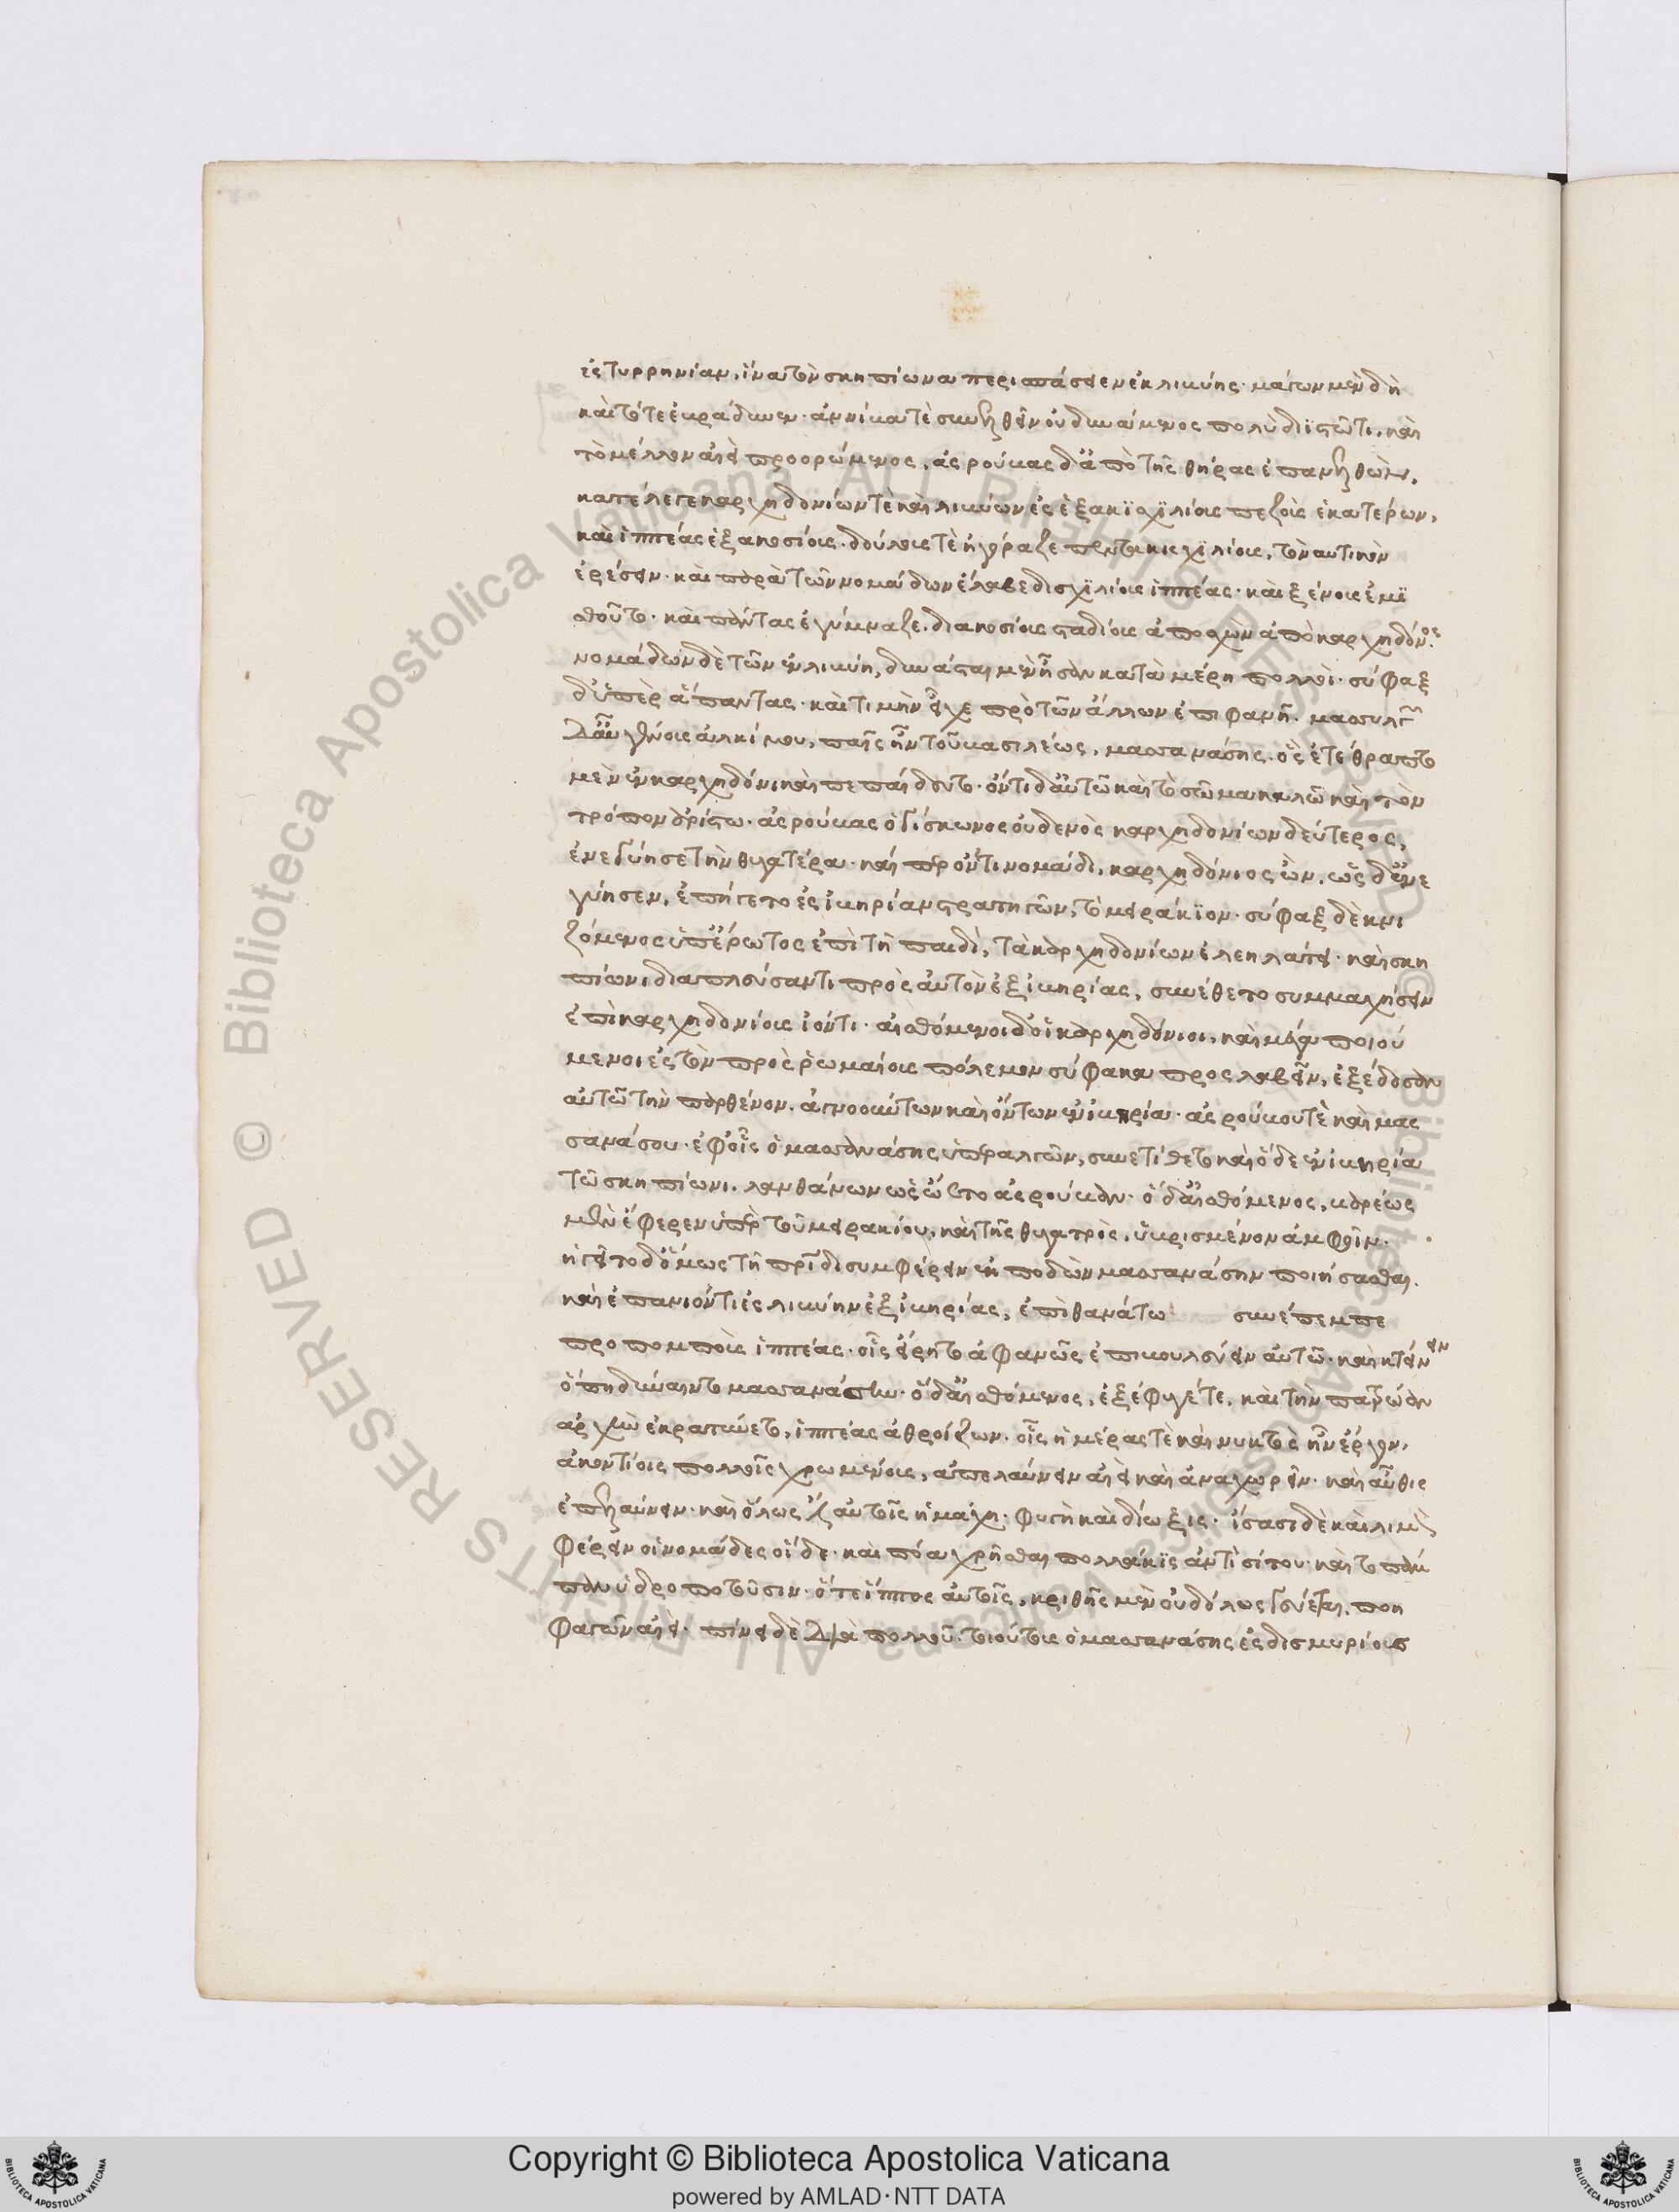 ἐς τυρρηνίαν, ἵνα τὸν σκηπίωνα περισπάσειεν ἐκ λιβύης. μάγων μὲν δὴ
καὶ τότε ἐβράδυνεν. ἀννίβα τὲ συνελθεῖν οὐ δυνάμενος πολὺ διϊστῶτι, καὶ
τὸ μέλλον αἰεὶ προορώμενος. ἀσρούβας δ' ἀπὸ τῆς θήρας ἐπανελθὼν,
κατέλεγε καρχηδονίων τὲ καὶ λιβύων ἐς ἑξακισχιλίους πεζοὺς ἑκατέρων,
καὶ ἱππέας ἑξακοσίους. δούλους τὲ ἠγόραζε πεντακισχιλίους, ναυτικὸν
ἐρέσειν. καὶ παρὰ τῶν νομάδων ἔλαβε δισχιλίους ἱππέας. καὶ ξένους ἐμι
σθοῦτο. καὶ πάντας ἐγύμναζε, διακοσίους σταδίους ἀποσχὼν ἀπὸ καρχηδόνος.
νομάδων δὲ τῶν ἐν λιβύη, δυνάσται μὲν ἦσαν κατὰ μέρη πολλοὶ. σύφαξ
δ' ὑπὲρ ἅπαντας. καὶ τιμὴν εἶχε πρὸ τῶν ἄλλων ἐπιφανῆ. μασσυλίων
δ' αὖ γένους ἀλκίμου, παῖς ἦν τοῦ βασιλέως, μασσανάσης. ὃς ἐτέθραπτο
μὲν ἐν καρχηδόνι καὶ πεπαίδευτο. ὄντι δ' αὐτῶ καὶ τὸ σῶμα καλῶ καὶ τὸν
τρόπον ἀρίστω. ἀσρούβας ὁ γίσκωνος οὐδενὸς καρχηδονίων δεύτερος,
ἐνεγύησε τὴν θυγατέρα. καίπερ ὄντι νομάδι, καρχηδόνιος ὢν. ὡς δ' ἐνε
γύησεν, ἐπήγετο ἐς ἰβηρίαν στρατηγῶν, τὸ μειράκιον. σύφαξ δὲ κνι
ζόμενος ὑπ' ἔρωτος ἐπὶ τῆ παιδὶ, τὰ καρχηδονίων ἐλεηλάτει. καὶ σκη
πίωνι διαπλεύσαντι πρὸς αὐτὸν ἐξ ἰβηρίας, συνέθετο συμμαχήσειν
ἐπὶ καρχηδονίους ἰόντι. αἰσθόμενοι δ' οἱ καρχηδόνιοι, καὶ μέγα ποιού
μενοι ἐς τὸν πρὸς ῥωμαίους πόλεμον σύφακα προσλαβεῖν, ἐξέδοσαν
αὐτῶ τὴν παρθένον. ἀγνοούντων καὶ ὄντων ἐν ἰβηρία. ἀσρούβου τὲ καὶ μασ
σανάσου. ἐφ' οἷς ὁ μασσανάσης ὑπεραλγῶν, συνετίθετο καὶ ὅδε ἐν ἰβηρία
τῶ σκηπίωνι. λανθάνων ὡς ὤετο ἀσρούβαν. ὁ δ' αἰσθόμενος, βαρέως
μὲν ἔφερεν ὑπὲρ τοῦ μειρακίου, καὶ τῆς θυγατρὸς. ὑβρισμένοιν ἀμφοῖν.
ἡγεῖτο δ' ὅμως τῆ πατρίδι συμφέρειν ἐκποδὼν μασσανάσην ποιήσασθαι.
καὶ ἐπανιόντι ἐς λιβύην ἐξ ἰβηρίας, ἐπὶ θανάτω συνέπεμπε
προπομποὺς ἱππέας. οἷς εἴρητο ἀφανῶς ἐπιβουλεύειν αὐτῶ. καὶ κτείνειν
ὅπη δύναιντο μασσανάσην. ὁ δ' αἰσθόμενος, ἐξέφυγέ τε, καὶ τὴν πατρώαν
ἀρχὴν ἐκρατύνετο, ἱππέας ἀθροίζων. οἷς ἡμέρας τὲ καὶ νυκτὸς ἦν ἔργον,
ἀκοντίοις πολλοῖς χρωμένοις, ἀπελαύνειν αἰεὶ καὶ ἀναχωρεῖν. καὶ αὖθις
ἐπελαύνειν. καὶ ὅλως ἔστιν αὐτοῖς ἡ μάχη. φυγὴ καὶ δίωξις. ἴσασι δὲ καὶ λιμὸν
φέρειν οἱ νομάδες οἵδε. καὶ πόα χρῆσθαι πολλάκις ἀντὶ σίτου. καὶ τὸ πάμ
παν ὑδροποτοῦσιν. ὅ τε ἵππος αὐτοῖς, κριθῆς μὲν οὐδ' ὅλως γεύεται. ποη
φαγῶν αἰεὶ. πίνει δὲ διὰ πολλοῦ. τοιούτους ὁ μασσανάσης ἐς δισμυρίους